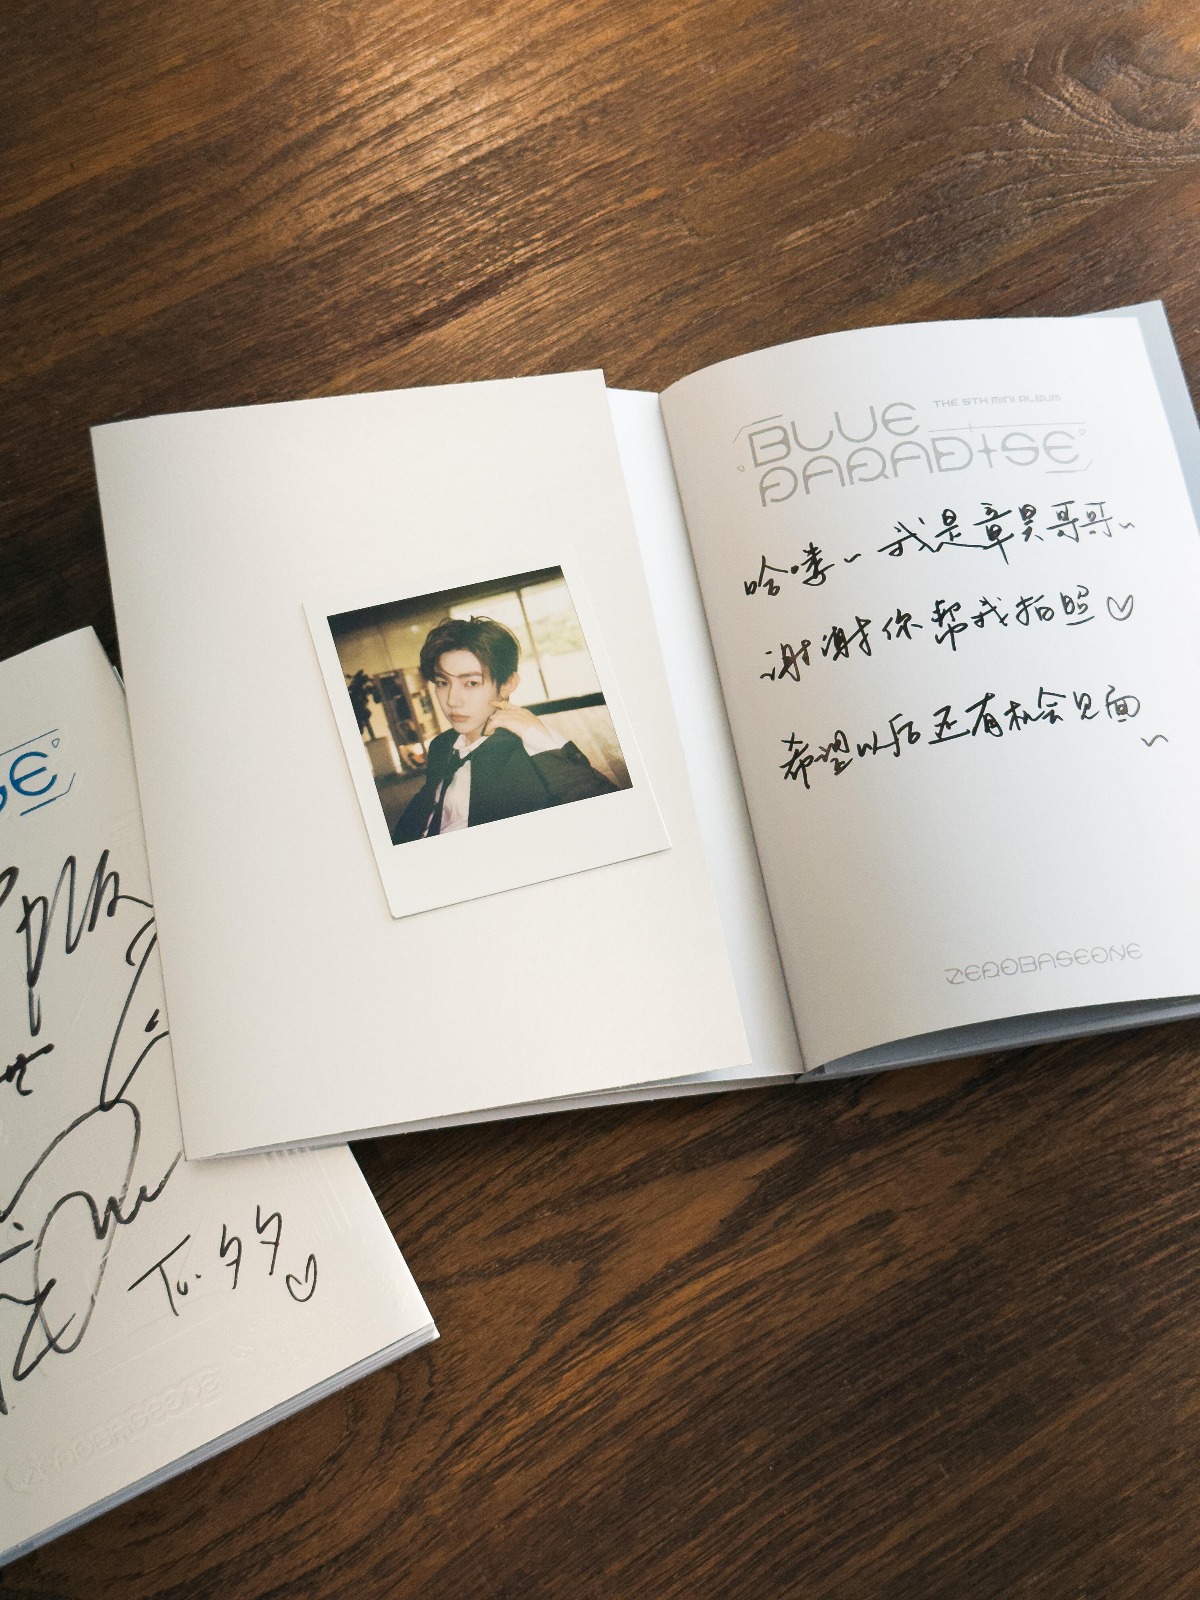 THE 5TH MINI ALBUM
BLUE
PARADISE
哈喽~ 我是章昊哥哥~
谢谢你帮我拍照♡
希望以后还有机会见面
~
ZEROBASEONE
SE
To. 夕夕
♡
ZEROBASEONE